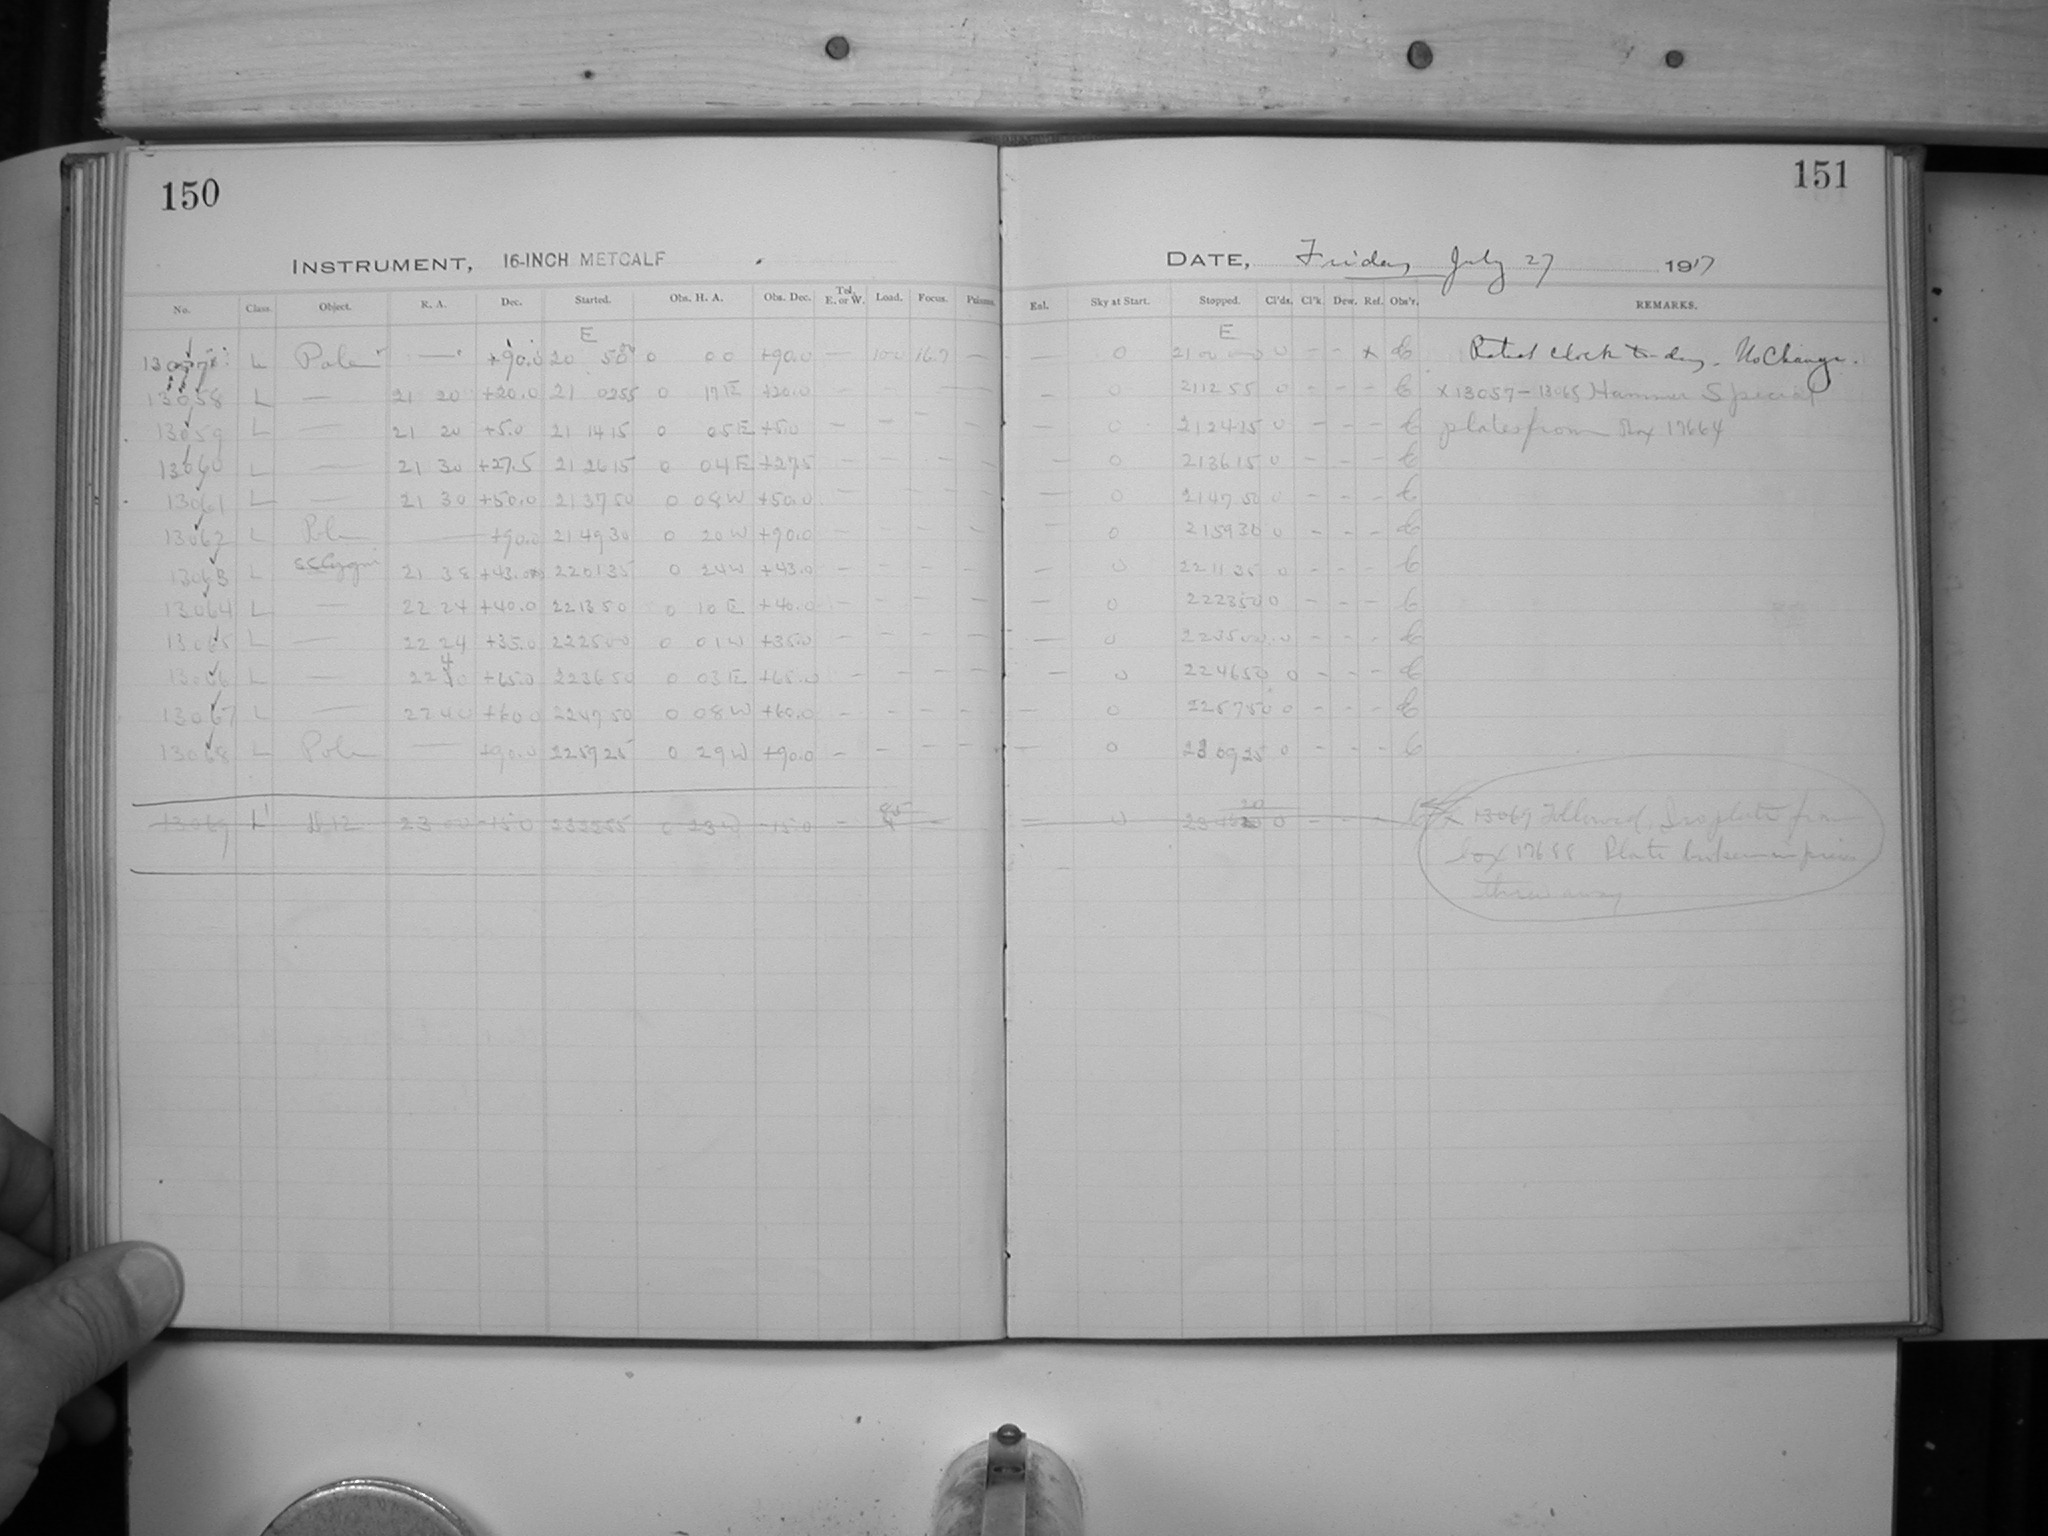 150
151
INSTRUMENT, 16-INCH METCALF
DATE, Friday July 27 1917
No. Class. Object. R. A. Dec. Started. Obs. H. A. Obs. Dec. Tel. E. or W. Load. Focus. Prisms. Enl. Sky at Start. Stopped. Cl'ds. Cl'k. Dew. Ref. Obs'r. REMARKS.
E E
13057 L Pole — +90.0 20 50 0 00 +90.0 — 100 16.7 — — 0 21 00 0 - - x C clock to-day. No Change.
13058 L — 21 20 +20.0 21 02 55 0 17 E +20.0 — 0 21 12 55 0 - - - C x 13057 - 13068 Hammer Special
13059 L — 21 20 +5.0 21 14 15 0 05 E +5.0 - - - - — 0 21 24 15 0 - - - C plates from Box 17664
13060 L — 21 30 +27.5 21 26 15 0 04 E +27.5 - - - - — 0 21 36 15 0 - - - C
13061 L — 21 30 +50.0 21 37 50 0 08 W +50.0 - - - - — 0 21 47 50 0 - - - C
13062 L Pole — +90.0 21 49 30 0 20 W +90.0 - - - - — 0 21 59 30 0 - - - C
13063 L SS Cygni 21 38 +43.0 22 01 35 0 24 W +43.0 - - - - — 0 22 11 35 0 - - - C
13064 L — 22 24 +40.0 22 13 50 0 10 E +40.0 - - - - — 0 22 23 50 0 - - - C
13065 L — 22 24 +35.0 22 25 00 0 01 W +35.0 - - - - — 0 22 35 00 0 - - - C
13066 L — 22 40 +65.0 22 36 50 0 03 E +65.0 - - - - — 0 22 46 50 0 - - - C
13067 L — 22 40 +60.0 22 47 50 0 08 W +60.0 - - - - — 0 22 57 50 0 - - - C
13068 L Pole — +90.0 22 59 25 0 29 W +90.0 - - - - — 0 23 09 25 0 - - - C
13069 L 23 00 -15.0 23 22 55 0 23 W -15.0 - - 0 23 0 - - - C x 13069 Followed. Iso plate from
box Plate broken in pieces
threw away